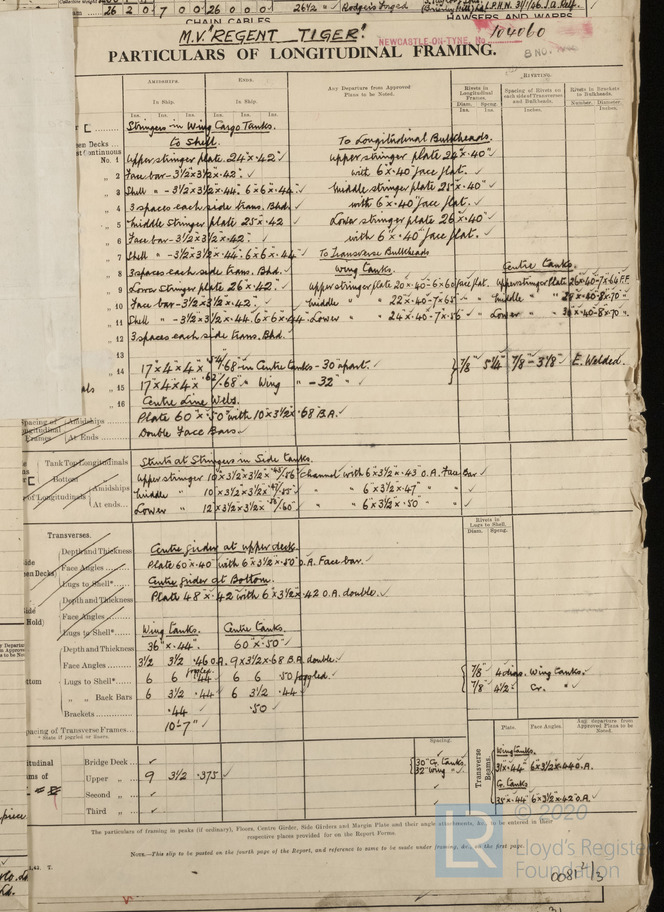 26 2 0 7 0 0 26 0 0 0 26½ " Rodgers Forged
CHAIN CABLES
HAWSERS AND WARPS
M.V. "REGENT TIGER."
NEWCASTLE-ON-TYNE, No. 104060
PARTICULARS OF LONGITUDINAL FRAMING.
AMIDSHIPS. ENDS. Any Departure from Approved Plans to be Noted. RIVETING.
In Ship. In Ship. Rivets in Longitudinal Frames. Spacing of Rivets on each side of Transverses and Bulkheads. Rivets in Brackets to Bulkheads.
Diam. Spcng. Inches. Number. Diameter.
Ins. Ins. Ins. Ins. Ins. Ins.
Stringers in Wing Cargo Tanks.
to Shell To Longitudinal Bulkheads.
No. 1 Upper stringer plate 24"x.42" upper stringer plate 24"x.40"
" 2 Face bar - 3½x3½x.42" with 6"x.40" face flat.
" 3 Shell " - 3½x3½x.44" 6x6x.44" Middle stringer plate 25"x.40"
" 4 3 spaces each side trans. Bhd. with 6"x.40" face flat.
" 5 Middle stringer plate 25"x.42 Lower stringer plate 26"x.40"
" 6 Face bar - 3½x3½x.42" with 6"x.40" face flat.
" 7 Shell " - 3½x3½x.44. 6x6x.44" To Transverse Bulkheads
" 8 3 spaces each side trans. Bhd. Wing Tanks. Centre Tanks.
" 9 Lower stringer plate 26"x.42" upper stringer plate 20"x.40-6"x.60 face flat. Upper stringer Plate 26"x.40-7"x.64 F.F.
" 10 Face bar - 3½x3½x.42" Middle " " 22"x.40-7"x.65" " Middle "
" 11 Shell " - 3½x3½x.44 6x6x.44" Lower " " 24"x.40-7"x " Lower "
" 12 3 spaces each side trans. Bhd.
" 13
" 14 17"x4"x4"x.54/.68 in Centre Tanks - 30" apart. 7/8" 5¼" 7/8 - 3 1/8" E. Welded.
" 15 17"x4x4"x.62/.68" " Wing " - 32" "
" 16 Centre Line Webs.
Plate 60"x.50" with 10"x3½"x.68 B.A.
At Ends Double Face Bars.
Tank Top Longitudinals Struts at Stringers in Side Tanks.
Bottom " Upper stringer 10"x3½"x3½"x Channel with 6"x3½"x.43 O.A. Face Bar
Amidships Middle " 10"x3½"x3½"x " " 6"x3½"x.47"
At ends Lower " 12"x3½"x3½"x " " 6"x3½"x.50"
Rivets in Lugs to Shell.
Diam. Spcng.
Transverses.
Depth and Thickness Centre girder at upper deck.
Face Angles Plate 60"x.40" with 6"x3½"x.50" O.A. Face bar.
Lugs to Shell* Centre girder at Bottom.
Depth and Thickness Plate 48"x.42 with 6"x3½"x.42 O.A. double.
Face Angles
Lugs to Shell* Wing Tanks. Centre Tanks.
Depth and Thickness 36"x.44" 60"x.50"
Face Angles 3½ 3½ .46 O.A. 9x3½x.68 B.A. double.
Lugs to Shell* 6 6 joggled .44 6 6 .50 joggled. 7/8" 4 dias. Wing Tanks.
" " Back Bars 6 3½ .44 6 3½ .44 7/8" 4½" Cr. "
Brackets .44 .50
Spacing of Transverse Frames 10'-7"
* State if joggled or liners.
Spacing. Transverse Beams. Plate. Face Angles. Any departure from Approved Plans to be Noted.
Bridge Deck 30" C. Tanks.
Upper " 9 3½ .375 32" Wing "
Wing tanks
31"x.44" 6"x3½"x.44 O.A.
Second "
C. Tanks.
Third " 35"x.44" 6"x3½"x.42 O.A.
The particulars of framing in peaks (if ordinary), Floors, Centre Girder, Side Girders and Margin Plate and their angle attachments, &c., to be entered in their
respective places provided for on the Report Forms.
NOTE.—This slip to be posted on the fourth page of the Report, and reference to same to be made under framing, &c., on the first page.
LR
© 2020
Lloyd's Register
Foundation